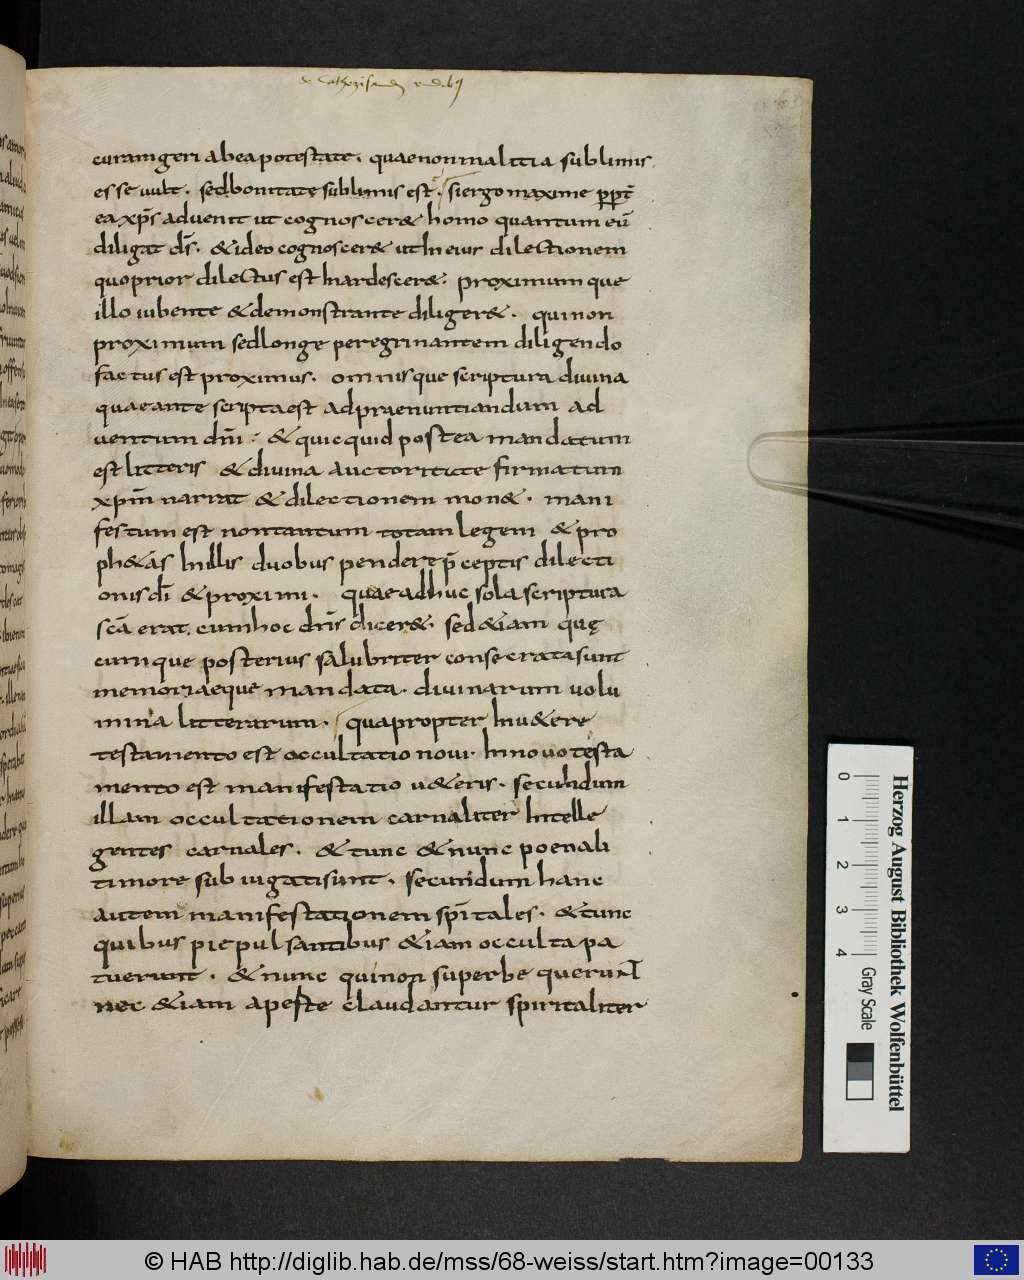 de Cathezisandis rudibus
curam geri ab ea potestate. quae non malitia sublimis
esse vult. sed bonitate sublimis est. si ergo maxime ppt̄
ea xp̄s advenit ut cognosceret homo quantum eū
diligat ds̄. & ideo cognoscer& ut In eius dilectionem
quo prior dilectus est Inardescer&. proximum que
illo iubente & demonstrante diliger&. qui non
proximum sed longe peregrinantem diligendo
factus est proximus. omnisque scriptura divina
quae ante scripta est ad praenuntiandum ad
ventum dn̄i. & quicquid postea mandatum
est litteris & divina auctoritate firmatum
xp̄m narrat & dilectionem mon&. mani
festum est non tantum totam legem & pro
ph&as In illis duobus pendere p̄ceptis dilecti
onis dī & proximi. quae adhuc sola scriptura
scā erat. cum hoc dn̄s dicer&. sed &iam quę
cumque posterius salubriter consecrata sunt
memoriaeque mandata. divinarum volu
mina litterarum. quapropter In v&ere
testamento est occultatio novi. In novo testa
mento est manifestatio v&eris. secundum
illam occultationem carnaliter Intelle
gentes carnales. & tunc & nunc poenali
timore subiugati sunt. secundum hanc
autem manifestationem spī tales. & tunc
quibus pie pulsantibus &iam occulta pa
tuerunt. & nunc qui non superbe querunt
nec &iam aperte claudantur spiritaliter
0
1
2
3
4
Gray Scale
Herzog August Bibliothek Wolfenbüttel
© HAB http://diglib.hab.de/mss/68-weiss/start.htm?image=00133